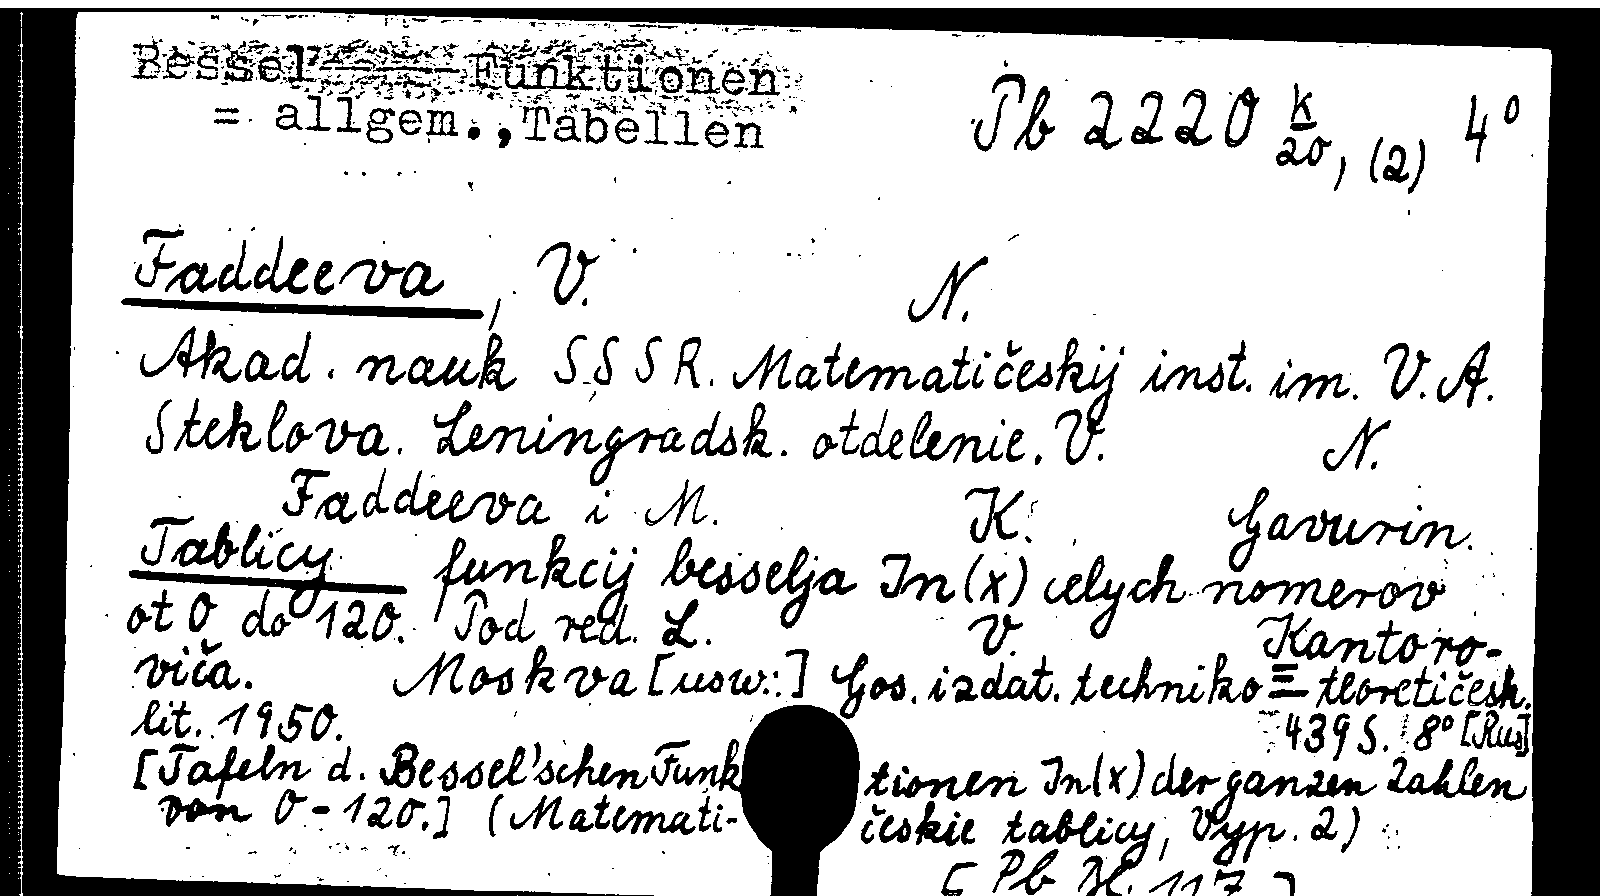 Bessel-Funktionen
= allgem., Tabellen
Pb 2220 K/20, (2) 4°
Faddeeva, V. N.
Akad. nauk SSSR. Matematičeskij inst. im. V. A.
Steklova. Leningradsk. otdelenie. V. N.
Faddeeva i M. K. Gavurin.
Tablicy funkcij besselja In(x) celych nomerov
ot 0 do 120. Pod red. L. V. Kantoro-
viča. Moskva [usw.:] Gos. izdat. techniko = teoretičesk.
lit. 1950. 439 S. 8° [Rus]
[Tafeln d. Bessel'schen Funktionen In(x) der ganzen Zahlen
von 0-120.] (Matematičeskie tablicy, Vyp. 2)
[Pb 117]